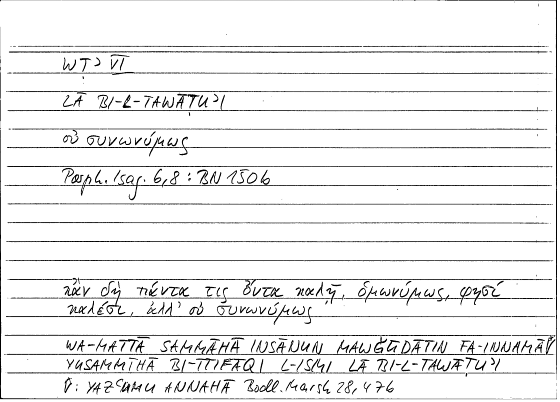 WṬʾ VI
LĀ BI-L-TAWĀṬUʾI
οὐ συνωνύμως
Porph. Isag. 6,8 : BN 150b
κἂν δὴ πάντα τις ὄντα καλῇ, ὁμωνύμως, φησί
καλέσει, ἀλλ' οὐ συνωνύμως
WA-MATTĀ SAMMĀHĀ INSĀNUN MAWǦŪDĀTIN FA-INNAMĀ
YUSAMMĪHĀ BI-TTIFĀQI L-ISMI LĀ BI-L-TAWĀṬUʾI
: YAZʿUMU ANNAHĀ Bodl. Marsh 28, 47b